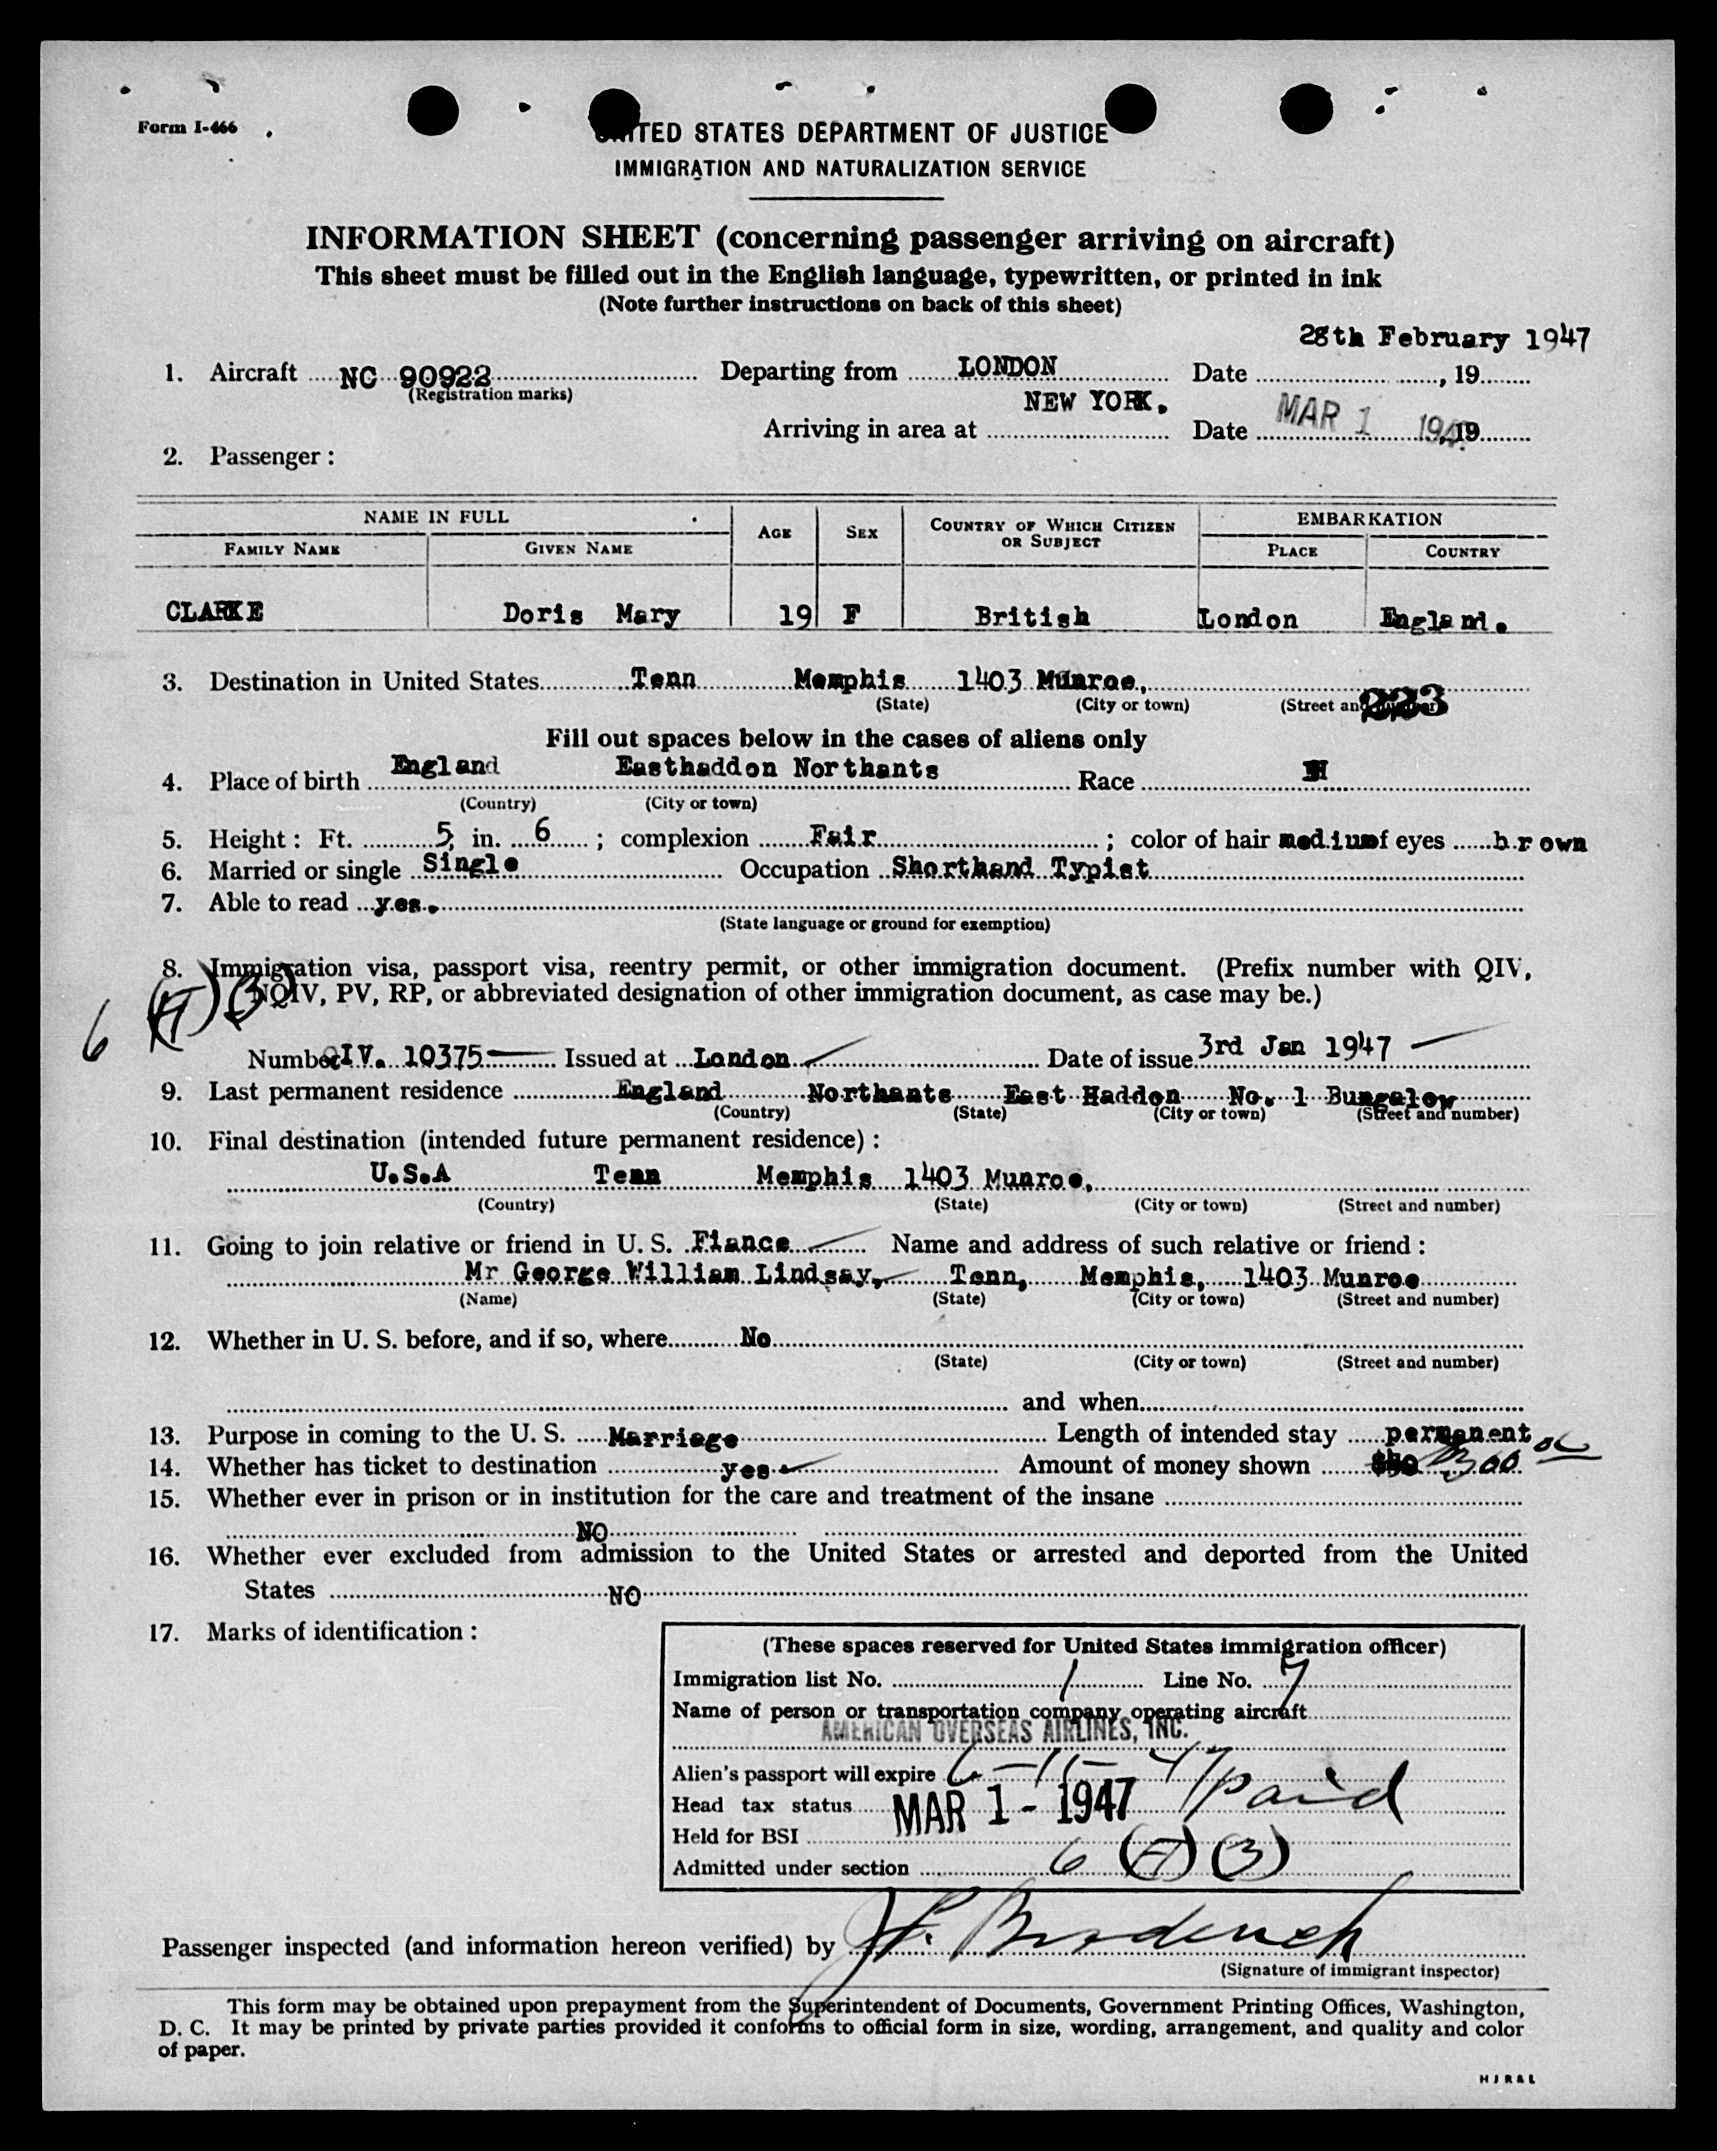 Form I-466
UNITED STATES DEPARTMENT OF JUSTICE
IMMIGRATION AND NATURALIZATION SERVICE
INFORMATION SHEET (concerning passenger arriving on aircraft)
This sheet must be filled out in the English language, typewritten, or printed in ink
(Note further instructions on back of this sheet)
28th February 1947
1. Aircraft NC 90922 Departing from LONDON Date , 19
(Registration marks)
NEW YORK.
Arriving in area at Date MAR 1 194 , 19
2. Passenger :
NAME IN FULL AGE SEX COUNTRY OF WHICH CITIZEN OR SUBJECT EMBARKATION
FAMILY NAME GIVEN NAME PLACE COUNTRY
CLARKE Doris Mary 19 F British London England.
3. Destination in United States Tenn Memphis 1403 Munroe,
(State) (City or town) (Street and number) 223
Fill out spaces below in the cases of aliens only
4. Place of birth England Easthaddon Northants Race
(Country) (City or town)
5. Height : Ft. 5; in. 6 ; complexion Fair ; color of hair medium of eyes brown
6. Married or single Single Occupation Shorthand Typist
7. Able to read yes.
(State language or ground for exemption)
8. Immigration visa, passport visa, reentry permit, or other immigration document. (Prefix number with QIV,
6 (A) (3) NQIV, PV, RP, or abbreviated designation of other immigration document, as case may be.)
Number QIV. 10375 Issued at London Date of issue 3rd Jan 1947
9. Last permanent residence England Northants East Haddon No. 1 Bungalow
(Country) (State) (City or town) (Street and number)
10. Final destination (intended future permanent residence) :
U.S.A Tenn Memphis 1403 Munroe,
(Country) (State) (City or town) (Street and number)
11. Going to join relative or friend in U. S. Fiance Name and address of such relative or friend :
Mr George William Lindsay, Tenn, Memphis, 1403 Munroe
(Name) (State) (City or town) (Street and number)
12. Whether in U. S. before, and if so, where No
(State) (City or town) (Street and number)
and when
13. Purpose in coming to the U. S. Marriage Length of intended stay permanent
14. Whether has ticket to destination yes Amount of money shown
15. Whether ever in prison or in institution for the care and treatment of the insane
NO
16. Whether ever excluded from admission to the United States or arrested and deported from the United
States NO
17. Marks of identification :
(These spaces reserved for United States immigration officer)
Immigration list No. 1 Line No. 7
Name of person or transportation company operating aircraft
AMERICAN OVERSEAS AIRLINES, INC.
Alien's passport will expire 6-11-47
Head tax status MAR 1 - 1947 paid
Held for BSI
Admitted under section 6 (A) (3)
Passenger inspected (and information hereon verified) by
(Signature of immigrant inspector)
This form may be obtained upon prepayment from the Superintendent of Documents, Government Printing Offices, Washington,
D. C. It may be printed by private parties provided it conforms to official form in size, wording, arrangement, and quality and color
of paper.
H J R & L